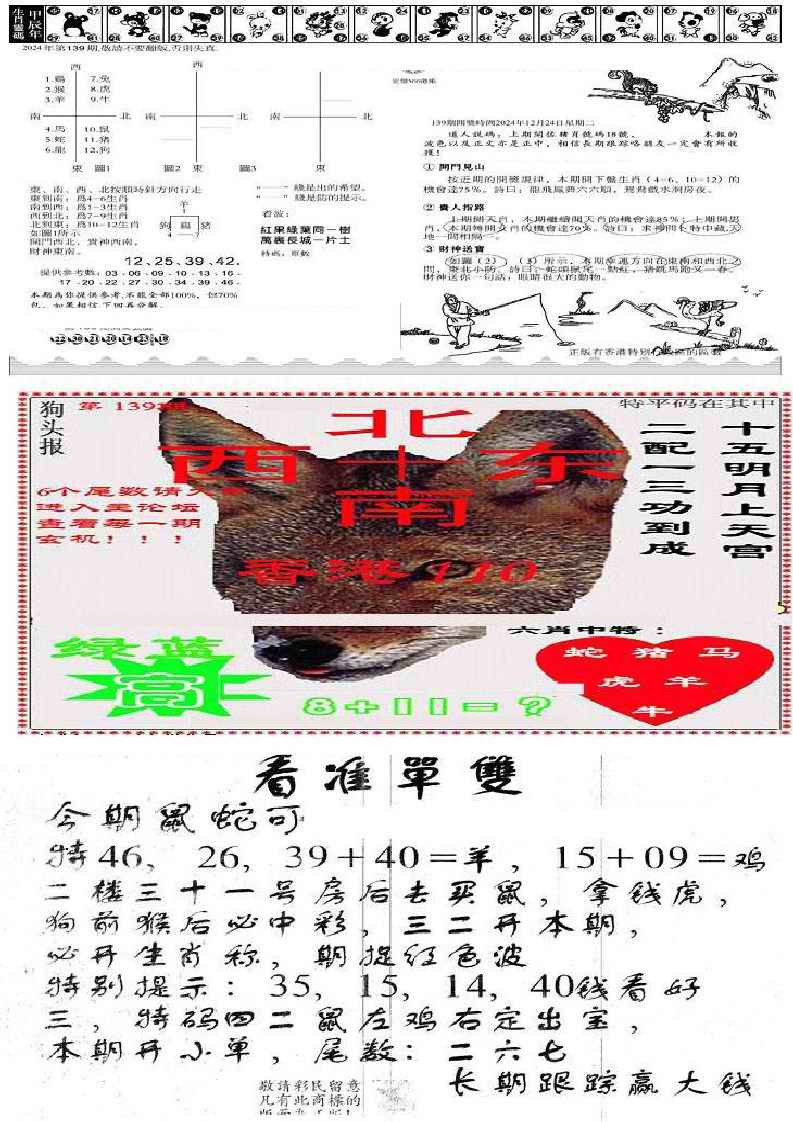 甲辰年
生肖靈碼
2024年第139期,敬請不要翻版,否則失真.
西
1.鷄 7.兔
2.猴 8.虎
3.羊 9.牛
南 北 南 北 南 北
4.馬 10.鼠
5.蛇 11.猪
6.龍 12.狗
東 圖1 圖2 東 圖3 東
東、南、西、北按順時針方向行走
東到南：爲4-6生肖
南到西：爲1-3生肖
西到北：爲7-9生肖
北到東：爲10-12生肖
如圖1所示
開門西北、貴神西南、
財神東南。
羊
狗 鷄 猪
4 7
12.25.39.42.
提供參考數：03·06·09·10·13·16·
17·20·22·27·30·34·39·46·
本期爲你提供參考,不能全部100%，但70%
色，如果相信下期再分解．
綫是出的希望。
綫是防的提示。
看波：
紅果綠葉同一樹
萬裏長城一片土
特碼：單數
139期開獎時間2024年12月24日星期二
道人説碼：上期開佐猪肖號碼18號， 本報的
波色以及正文亦是正中，相信長期跟踪咯朋友一定會有所收
獲！
① 開門見山
按近期的開獎規律，本期開下盤生肖（4-6、10-12）的
機會達75%。詩曰：龍飛鳳舞六六順，鴛鴦戲水洞房夜。
② 貴人指路
上期開天肖，本期繼續開天肖的機會達85%；上期開男
肖，本期轉開女肖的機會達70%。詩曰：末神開卡特中藏天
地一間相隔一。
③ 財神送寶
如圖（2）、（3）所示，本期幸運方向在東南和西北之
間，東北小防。詩曰：蛇頭鼠尾一點紅，猪跳馬跑又一春。
財神送你一句話：眼睛很大的動物。
正版有香港特别行政區的區數
狗头报
第 139期
特平码在其中
北
西 十 东
南
6个尾数请大家
进入主论坛
查看每一期
玄机！！！
香港410
十五明月上天宫
二配一三功到成
六肖中特：
绿蓝
高
8+11=?
蛇 猪 马
虎 羊
牛
看准單雙
今期鼠蛇可
特46，26，39+40=羊，15+09=鸡
二楼三十一号房后去买鼠，拿钱虎，
狗前猴后必中彩，三二开本期，
必开生肖称，期捉红色波
特别提示：35，15，14，40钱看好
三，特码四二鼠左鸡右定出宝，
本期开小单，尾数：二六七
长期跟踪赢大钱
敬請彩民留意
凡有此商標的